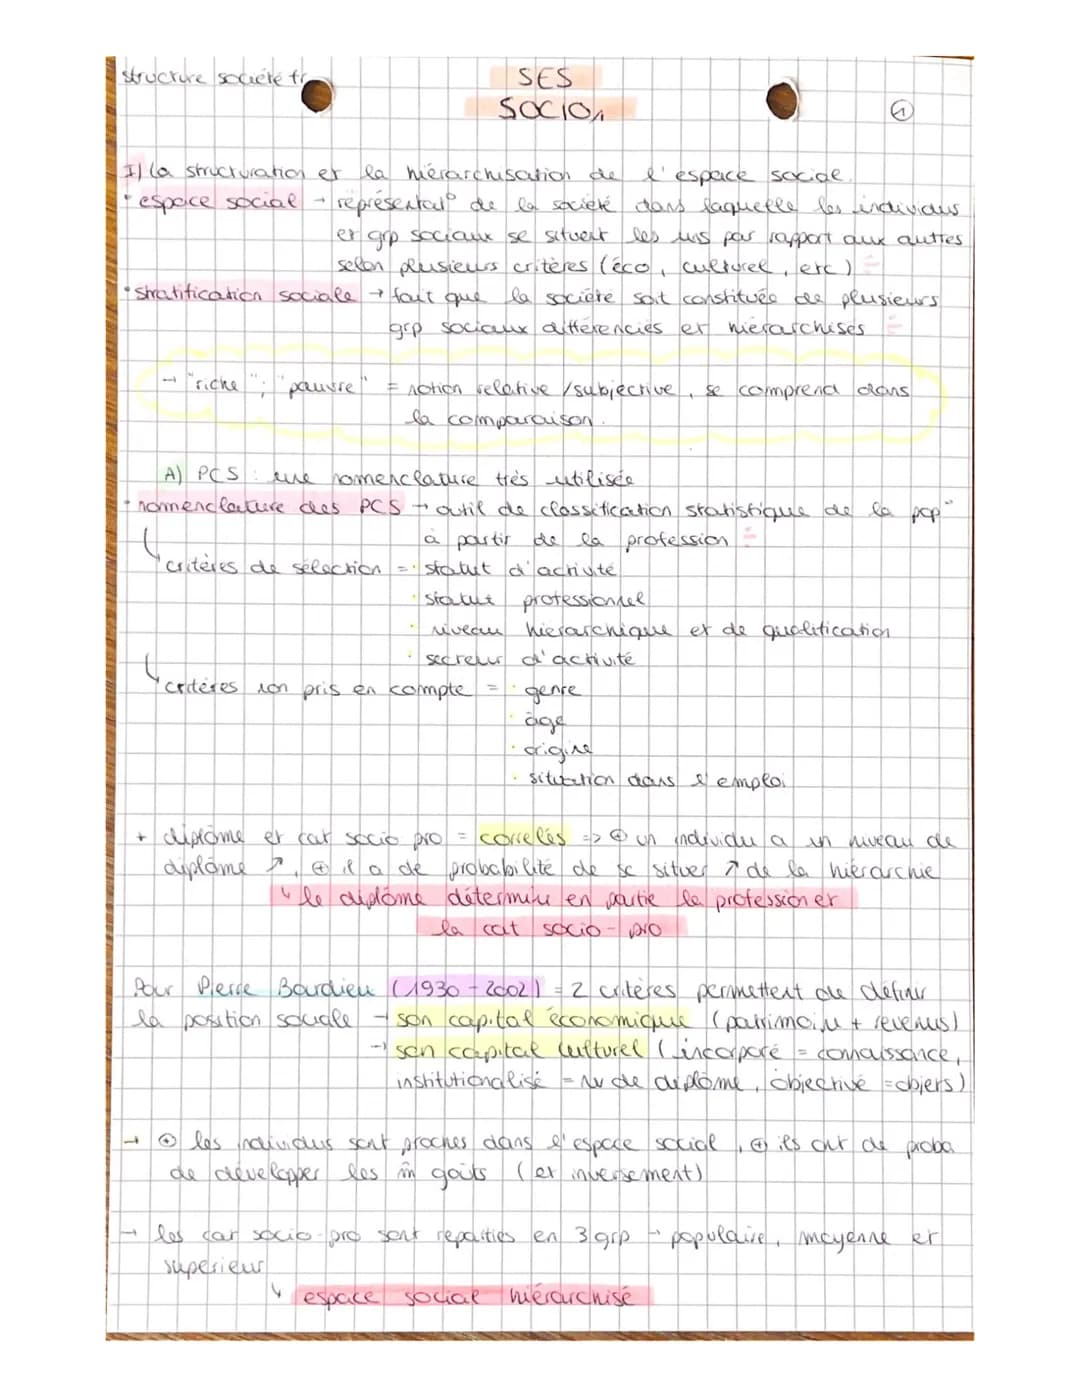 structure société fr
SES
SOCIO1
1
I) la structuration et la hiérarchisation de l'espace social.
• espace social → représentat° de la société dans laquelle les individus
et grp sociaux se situent les uns par rapport aux autres
selon plusieurs critères (éco, culturel, etc)
• stratification sociale → fait que la société soit constituée de plusieurs
grp sociaux différenciés et hiérarchisés
→ "riche"; "pauvre" = notion relative/subjective, se comprend dans
la comparaison.
A) PCS : une nomenclature très utilisée
• nomenclature des PCS → outil de classification statistique de la pop°
à partir de la profession
critères de sélection = • statut d'activité
• statut professionnel
• niveau hiérarchique et de qualification
• secteur d'activité
critères non pris en compte = • genre
• âge
• origine
• situation dans l'emploi
+ diplôme et cat socio pro = corrélés => ⊕ un individu a un niveau de
diplôme ↗, ⊕ il a de probabilité de se situer ↗ de la hiérarchie
↳ le diplôme détermine en partie la profession et
la cat socio-pro
Pour Pierre Bourdieu (1930-2002) = 2 critères permettent de définir
la position sociale → son capital économique (patrimoine + revenus)
→ son capital culturel (incorporé = connaissance,
institutionalisé = nv de diplôme, objectivé = objets)
→ ⊕ les individus sont proches dans l'espace social, ⊕ ils ont de proba
de développer les m̂ goûts (et inversement)
→ les cat socio-pro sont réparties en 3 grp → populaire, moyenne et
supérieur
↳ espace social hiérarchisé